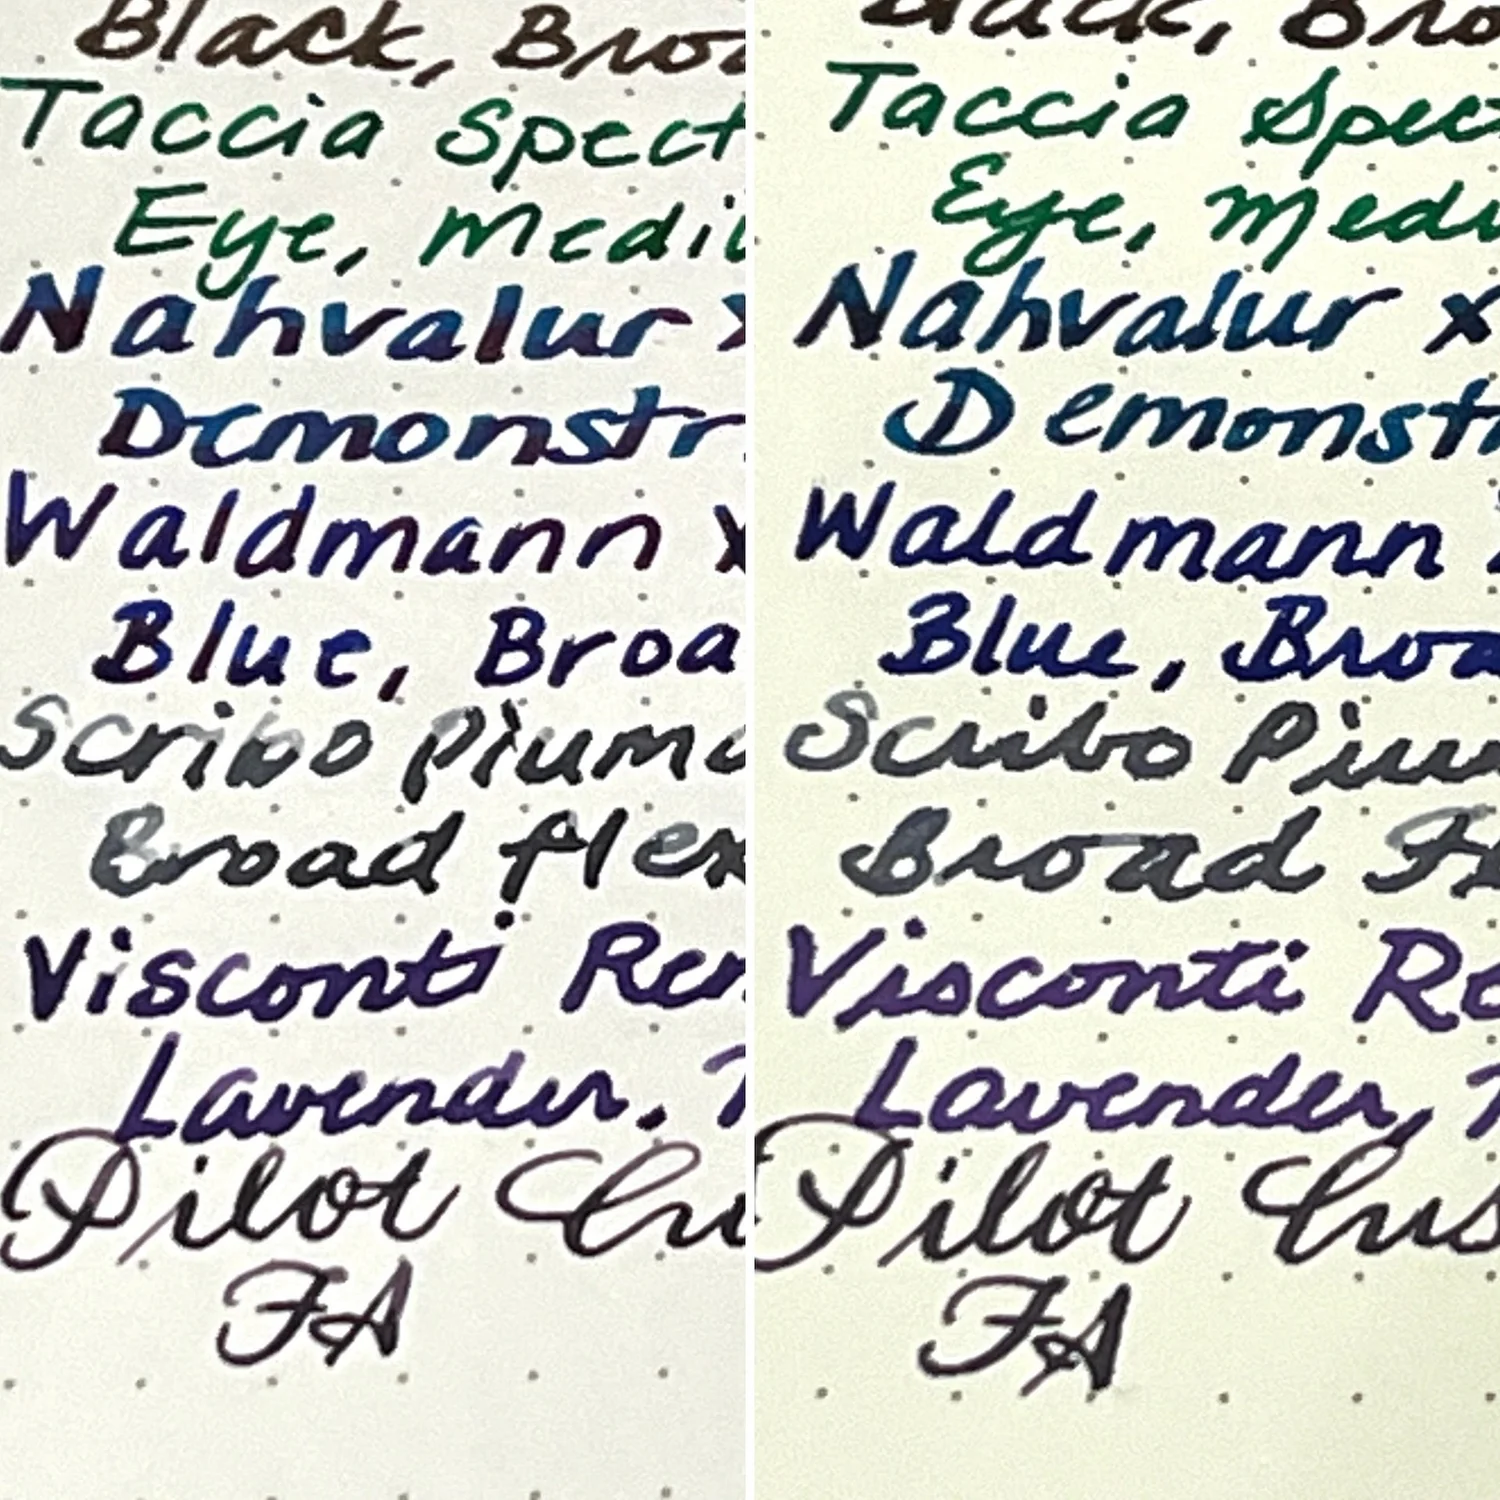 Black, Bro
Taccia Spect
Eye, Medi
Nahvalur x
Demonstr
Waldmann x
Blue, Broa
Scribo Pium
Broad flex
Visconti Ren
Lavender. 
Pilot Cu
FA
Black, Bro
Taccia Spec
Eye, Medi
Nahvalur x
Demonst
Waldmann
Blue, Broa
Scribo Piu
Broad Fl
Visconti Re
Lavender,
Pilot Cus
FA